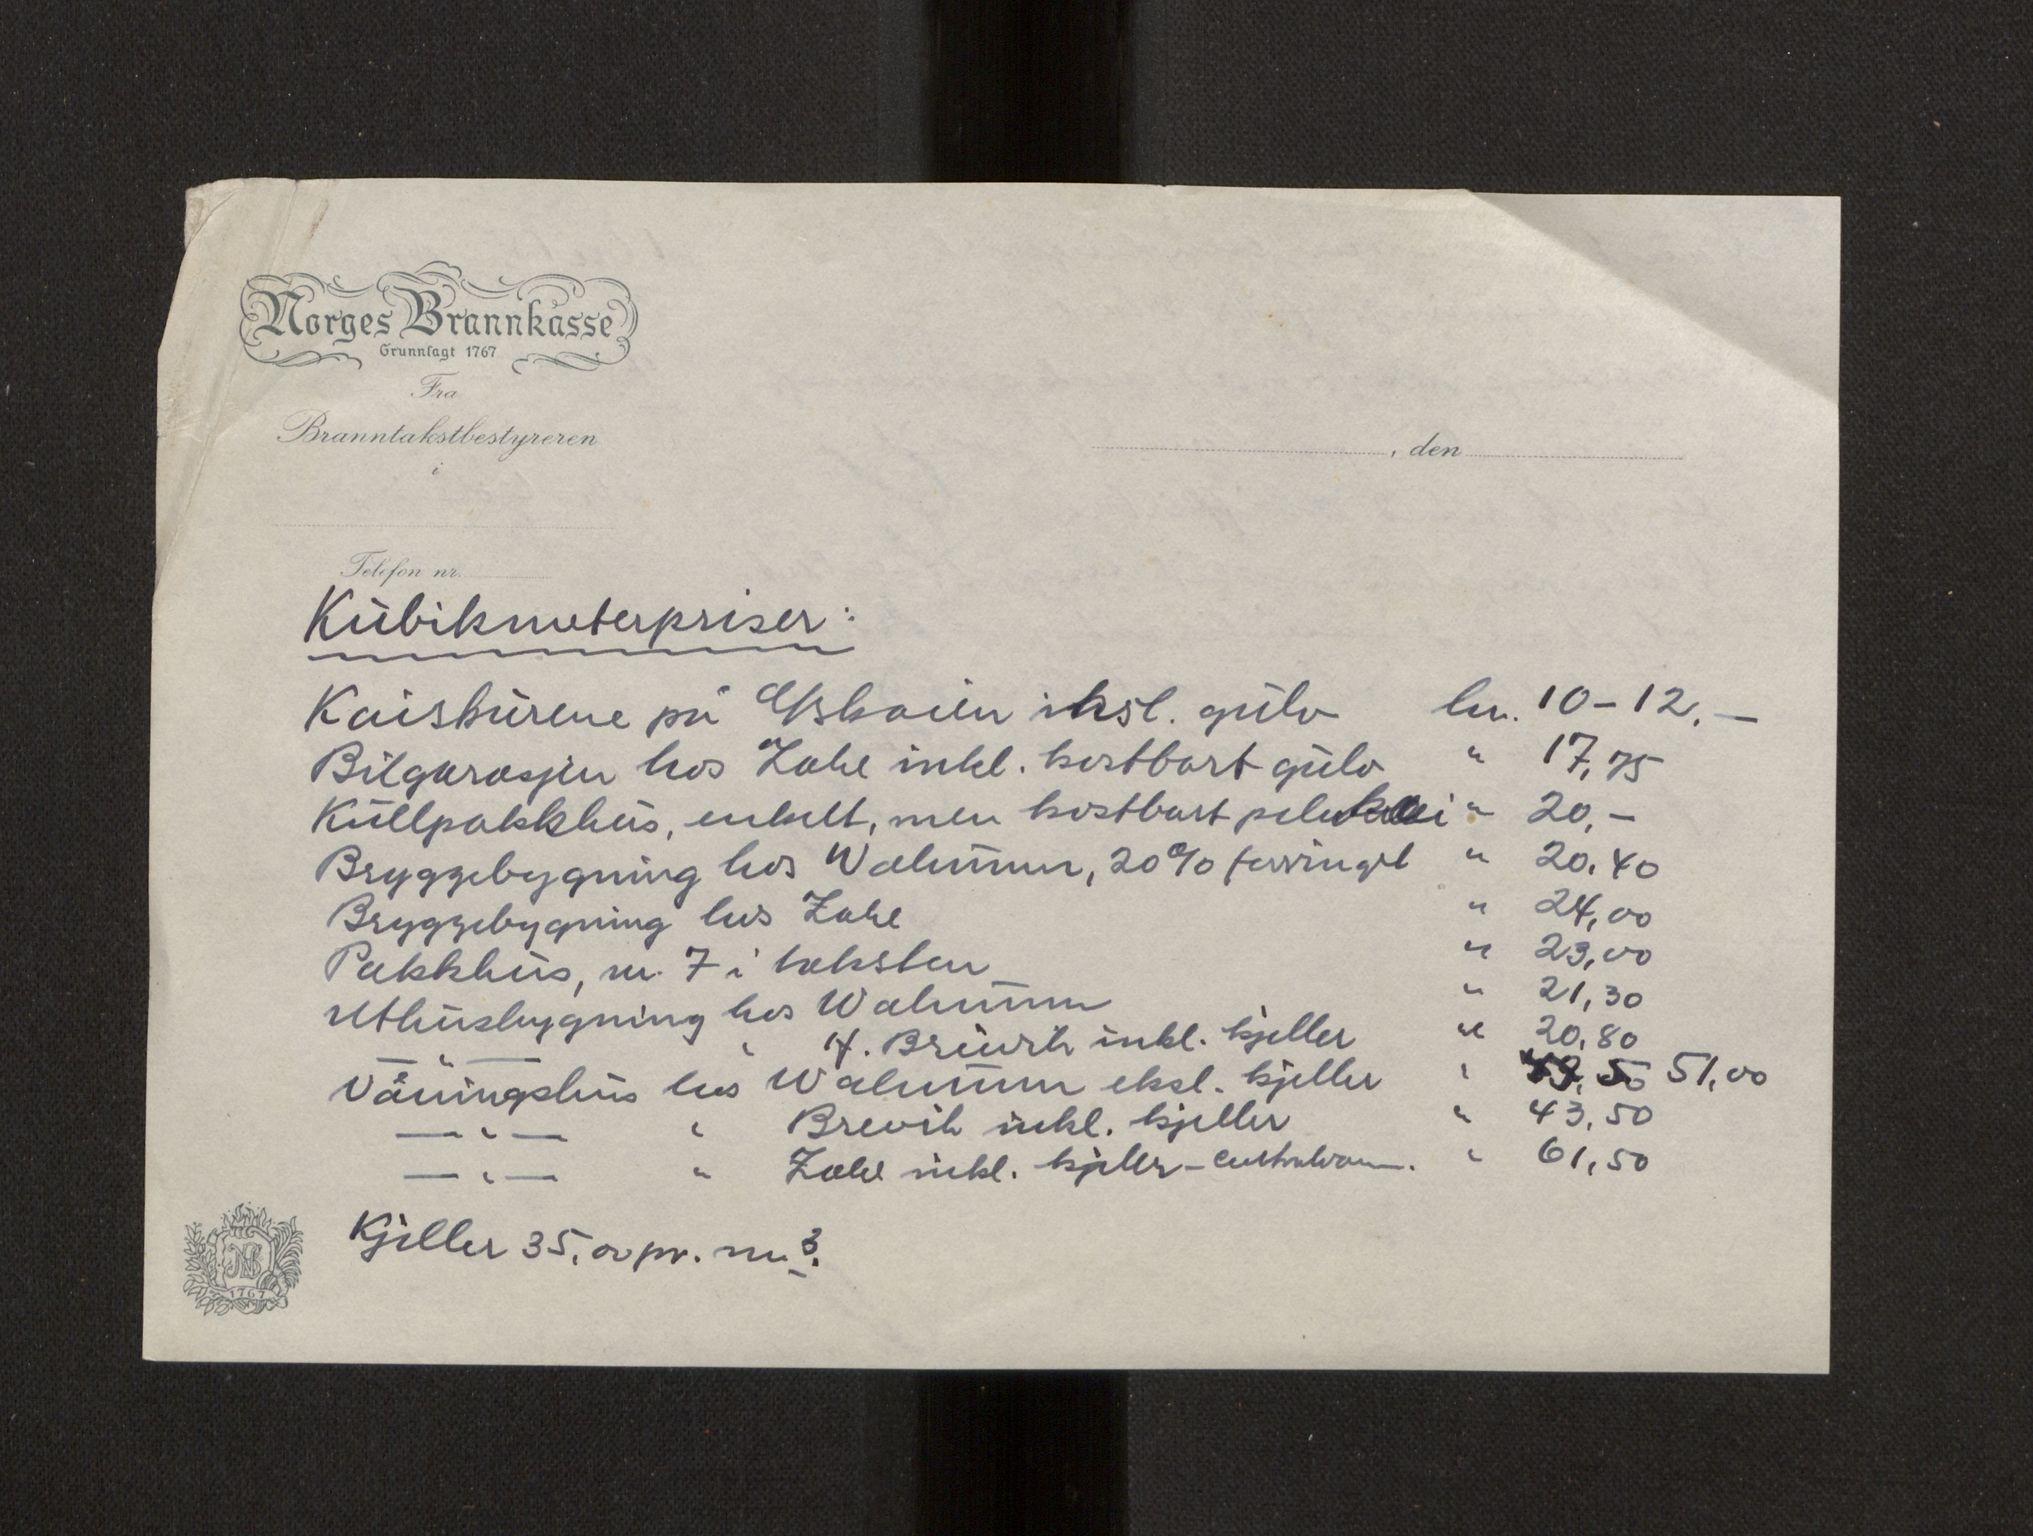 Norges Brannkasse
Grunnlagt 1767
Fra
Branntakstbestyreren
i
, den
Telefon nr.
Kubikmeterpriser:
Kaiskurene på D/skaien eksl. gulv kr. 10-12.—
Bilgarasjen hos Zahl inkl. kostbart gulv " 17,75
Kullpakkhus, enkelt, men kostbart pelekai " 20,-
Bryggebygning hos Walnum, 20% forringet " 20,40
Bryggebygning hos Zahl " 24,00
Pakkhus, nr. 7 i taksten " 23,00
Uthusbygning hos Walnum " 21,30
— " — " H. Breivik inkl. kjeller " 20,80
Våningshus hos Walnum eksl. kjeller " 51,00
— " — " Breivik inkl. kjeller " 43,50
— " — " Zahl inkl. kjeller - centralvarm. " 61,50
Kjeller 35,00 pr. m3.
NB
1767